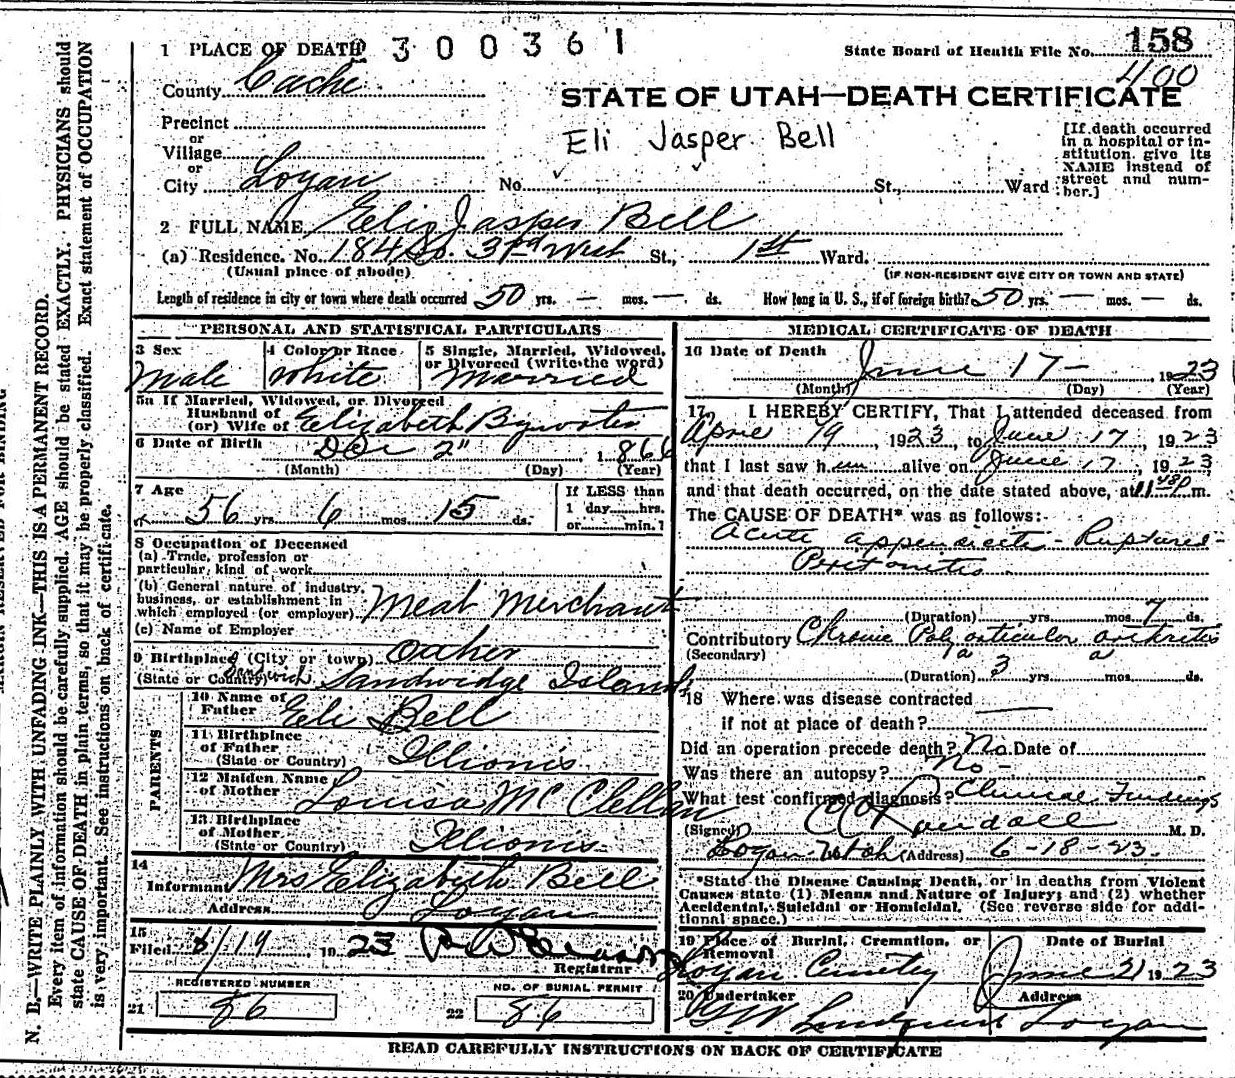 1 PLACE OF DEATH 300361
State Board of Health File No. 158
400
County Cache
STATE OF UTAH—DEATH CERTIFICATE
Eli Jasper Bell
Precinct
or
Village
or
City Logan No. St., Ward
[If death occurred
in a hospital or in-
stitution give its
NAME instead of
street and num-
ber.]
2 FULL NAME Eli Jasper Bell
(a) Residence. No. 184 So. 3rd West St., 1st Ward.
(Usual place of abode) (IF NON-RESIDENT GIVE CITY OR TOWN AND STATE)
Length of residence in city or town where death occurred 50 yrs. — mos. — ds. How long in U. S., if of foreign birth? 50 yrs. — mos. — ds.
PERSONAL AND STATISTICAL PARTICULARS
3 Sex 4 Color or Race 5 Single, Married, Widowed,
or Divorced (write the word)
Male White Married
5a If Married, Widowed, or Divorced
Husband of
(or) Wife of Elizabeth Bywater
6 Date of Birth Dec 2" 1866
(Month) (Day) (Year)
7 Age
56 yrs. 6 mos. 15 ds.
If LESS than
1 day hrs.
or min.?
8 Occupation of Deceased
(a) Trade, profession or
particular kind of work
(b) General nature of industry,
business, or establishment in
which employed (or employer) Meat Merchant
(c) Name of Employer
9 Birthplace (City or town)
(State or Country) Sandwich Sandwidge Islands
PARENTS
10 Name of
Father Eli Bell
11 Birthplace
of Father
(State or Country) Illionis
12 Maiden Name
of Mother Louisa McClellan
13 Birthplace
of Mother
(State or Country) Illionis
14
Informant Mrs Elizabeth Bell
Address Logan
15
Filed 6/19 1923
Registrar
REGISTERED NUMBER
21 86
NO. OF BURIAL PERMIT
22 86
MEDICAL CERTIFICATE OF DEATH
16 Date of Death June 17 - 1923
(Month) (Day) (Year)
17 I HEREBY CERTIFY, That I attended deceased from
April 19, 1923, to June 17, 1923
that I last saw him alive on June 17, 1923
and that death occurred, on the date stated above, at 11 m.
The CAUSE OF DEATH* was as follows:
Acute appendicitis - Ruptured -
Peritonitis
(Duration) yrs. mos. 7 ds.
Contributory Chronic Poly articular arthritis
(Secondary)
(Duration) 3 yrs. mos. ds.
18 Where was disease contracted
if not at place of death?
Did an operation precede death? No Date of
Was there an autopsy? No -
What test confirmed diagnosis? Clinical Findings
(Signed) Randall M. D.
Logan Utah (Address) 6-18-23
*State the Disease Causing Death, or in deaths from Violent
Causes state (1) Means and Nature of Injury; and (2) whether
Accidental, Suicidal or Homicidal. (See reverse side for addi-
tional space.)
19 Place of Burial, Cremation, or
Removal
Logan Cemetery
Date of Burial
June 21 1923
20 Undertaker Address
Lindquist Logan
READ CAREFULLY INSTRUCTIONS ON BACK OF CERTIFICATE
MARGIN RESERVED FOR BINDING
N. B.—WRITE PLAINLY WITH UNFADING INK—THIS IS A PERMANENT RECORD.
Every item of information should be carefully supplied. AGE should be stated EXACTLY. PHYSICIANS should
state CAUSE OF DEATH in plain terms, so that it may be properly classified. Exact statement of OCCUPATION
is very important. See instructions on back of certificate.